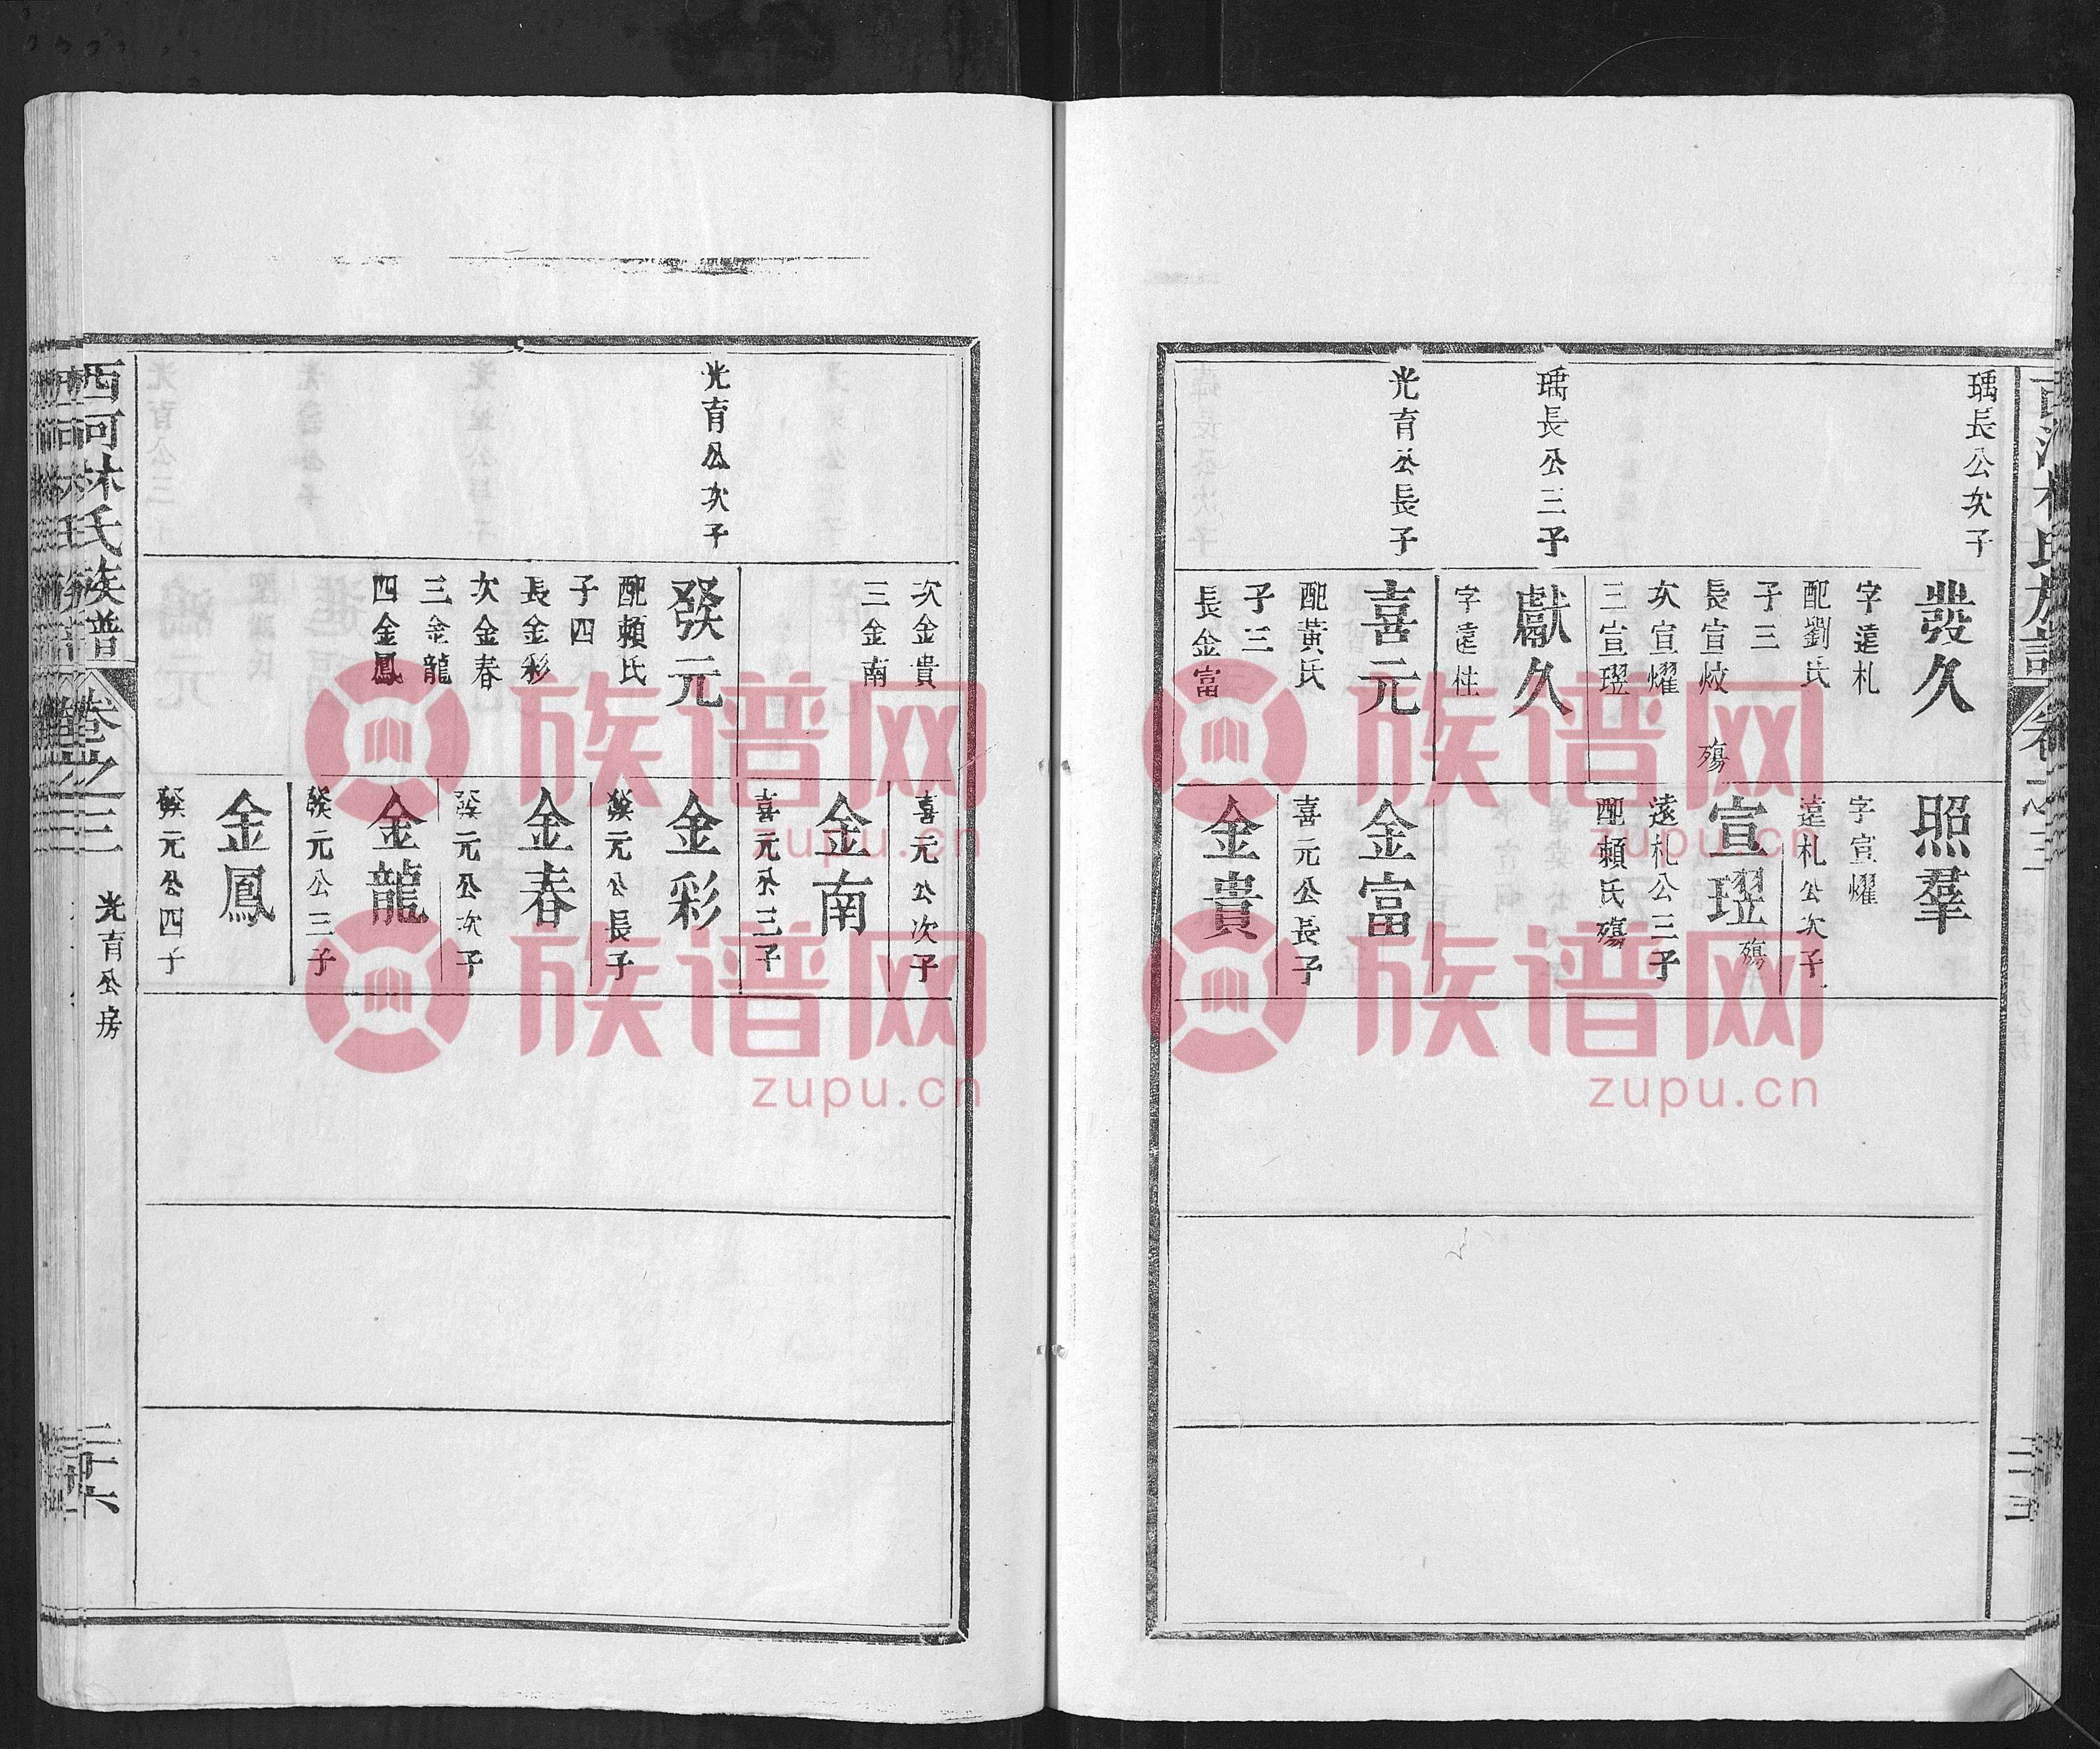 瑀長公次子
瑀長公三子
光育公長子
發久
字遠札
配劉氏
子三
長宣烄 殤
次宣燿
三宣瑆
獻久
字遠柱
喜元
配黃氏
子三
長金富
照羣
字宣燿
遠札公次子
殤
遠札公三子
配賴氏殤
金富
喜元公長子
金貴
光育公次子
次金貴
三金南
發元
配賴氏
子四
長金彩
次金春
三金龍
四金鳳
喜元公次子
金南
喜元公三子
金彩
發元公長子
金春
發元公次子
金龍
發元公三子
金鳳
發元公四子
西河林氏族譜
卷之三
光育公房
二十六
族谱网
zupu.cn
族谱网
zupu.cn
族谱网
zupu.cn
族谱网
zupu.cn